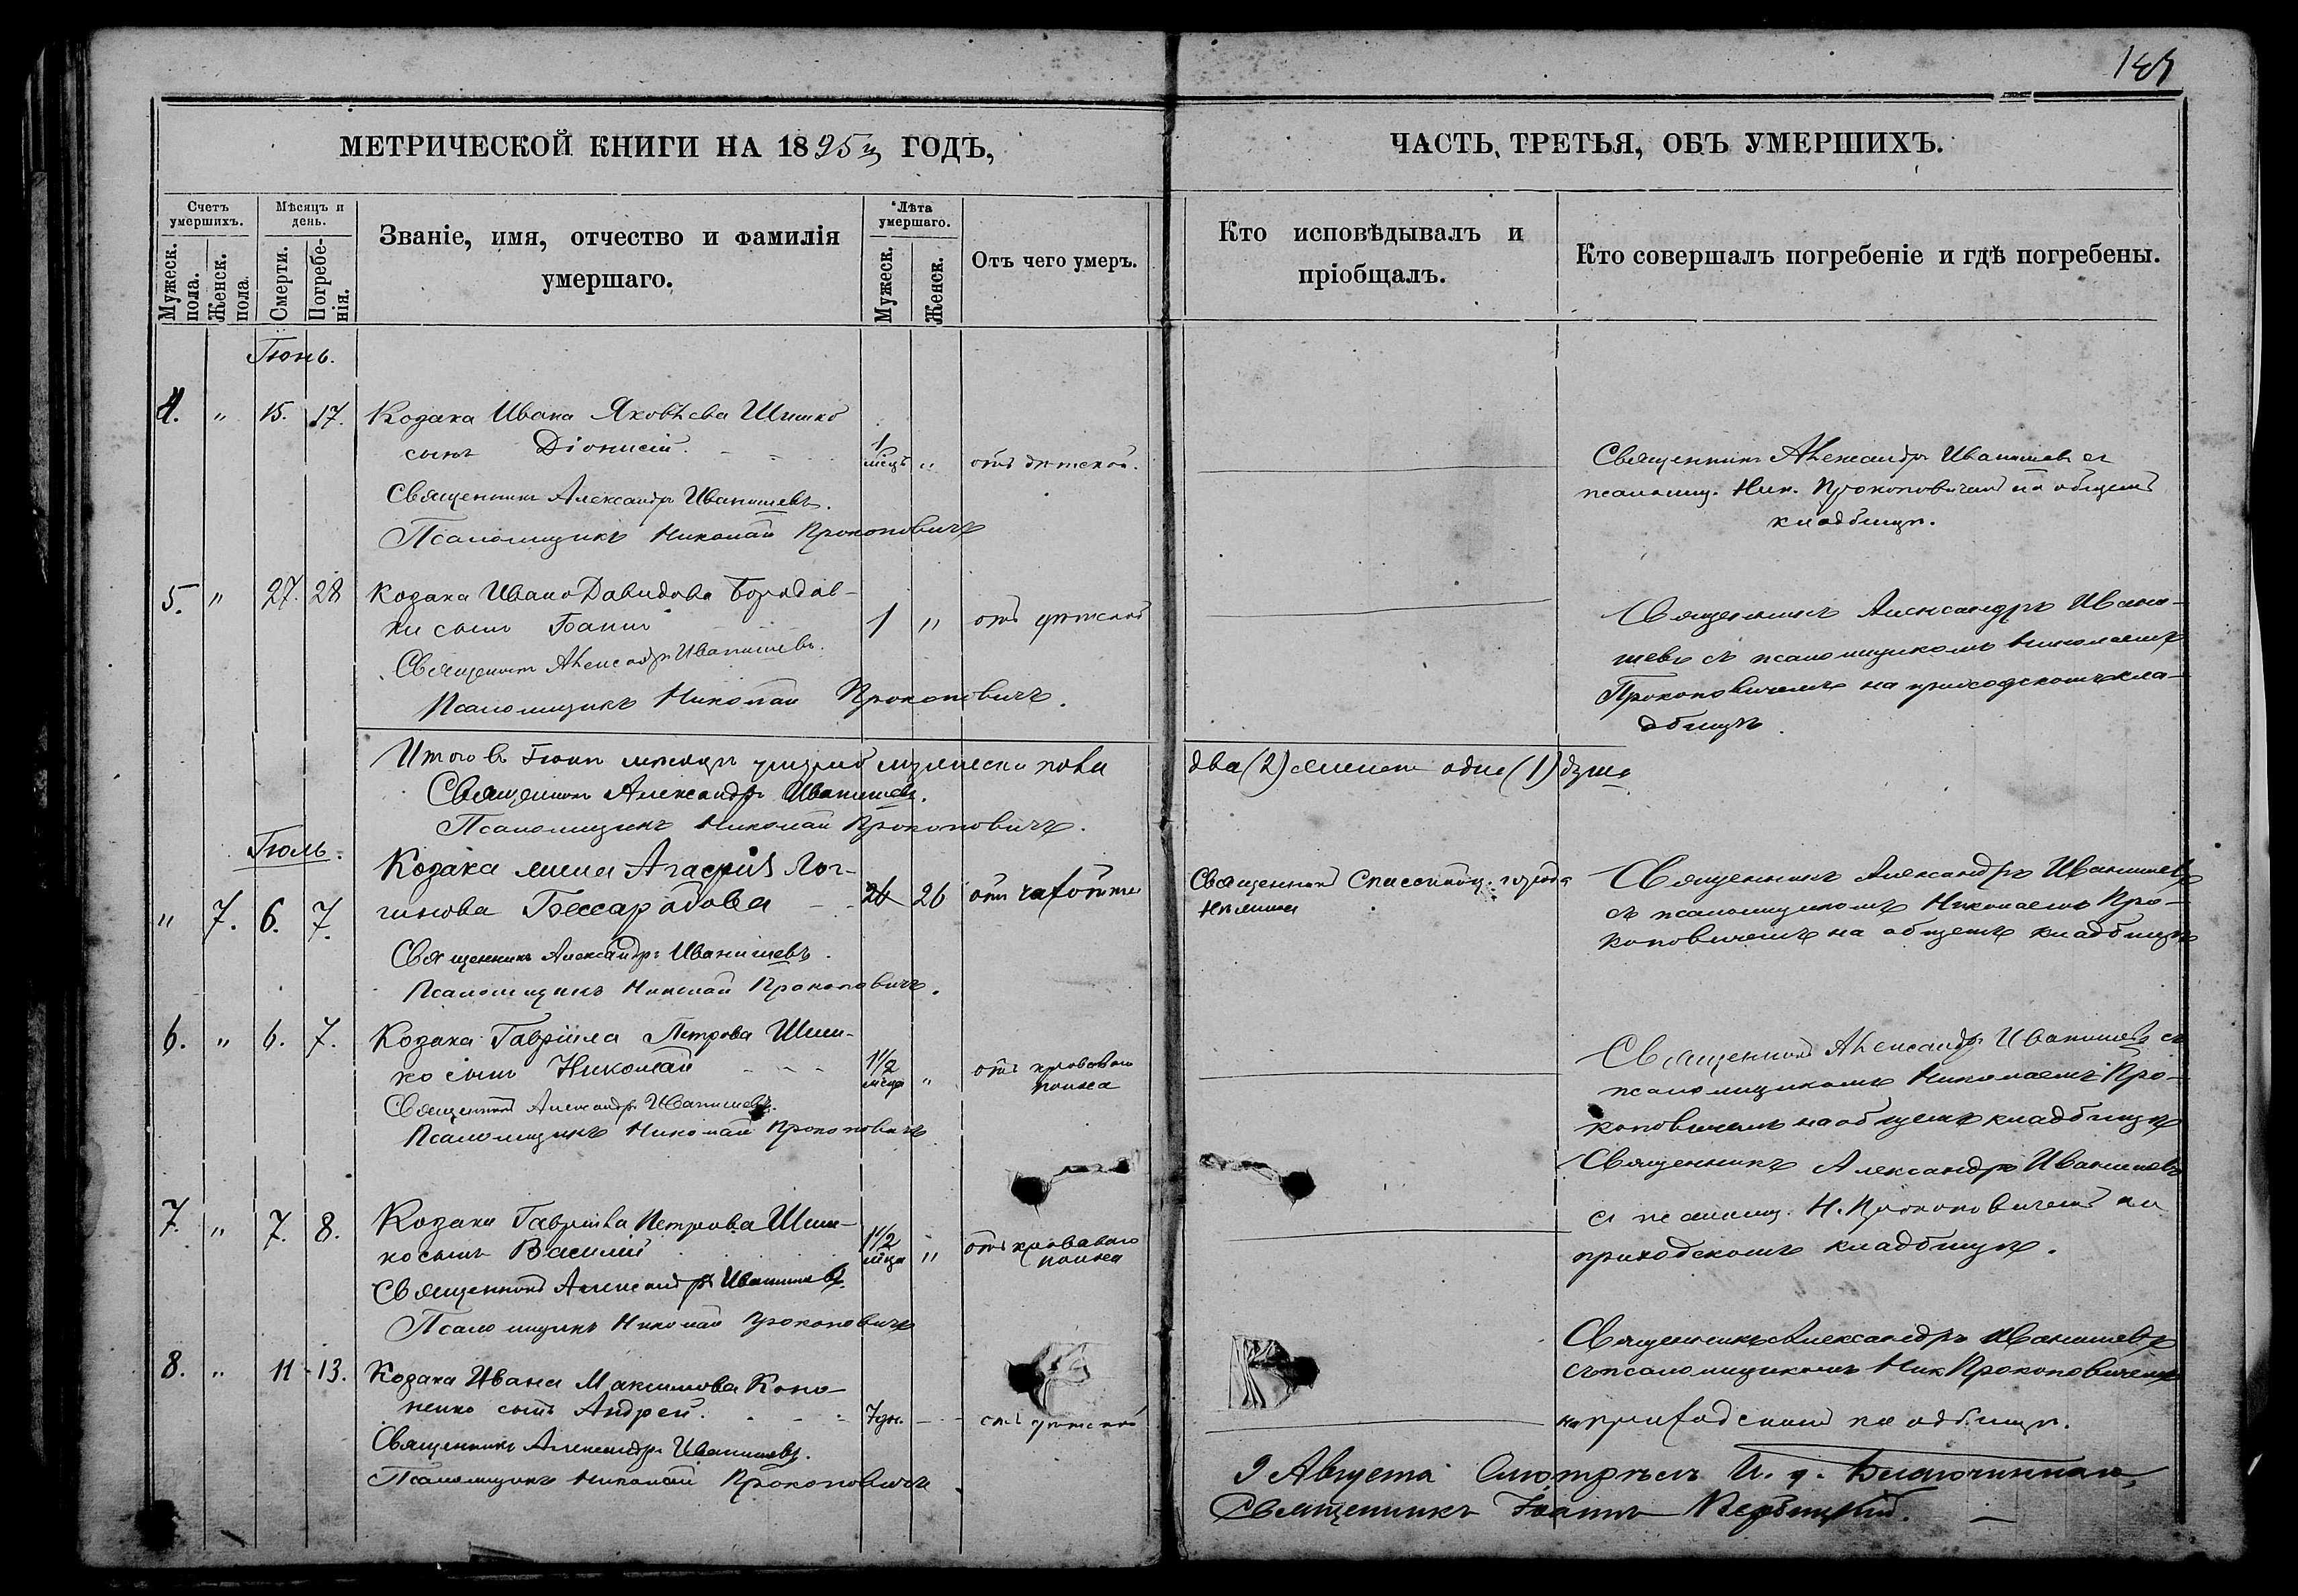 МЕТРИЧЕСКОЙ КНИГИ НА 1895й ГОДЪ,
Счетъ умершихъ.
Мужеск. пола.
Женск. пола.
Мѣсяцъ и день.
Смерти.
Погребенія.
Званіе, имя, отчество и фамилія
умершаго.
Лѣта умершаго.
Мужеск.
Женск.
Отъ чего умеръ.
Іюнь.
4. " 15. 17. Козака Ивана Яковлева Шишко
сынъ Діонисій. 1 мсцъ " отъ дѣтской.
Священникъ Александръ Иванишевъ.
Псаломщикъ Николай Прокоповичъ
5. " 27. 28 Козака Ивана Давидова Бородав-
ки сынъ 1 " отъ дѣтской
Священникъ Александръ Иванишевъ.
Псаломщикъ Николай Прокоповичъ.
Итого въ Іюнѣ мѣсяцѣ умерло мужеска пола
Священникъ Александръ Иванишевъ.
Псаломщикъ Николай Прокоповичъ.
Іюль.
Козака жена Агафія Лог-
" 7. 6. 7. гинова Бессарабова 26 26 отъ чахотки
Священникъ Александръ Иванишевъ.
Псаломщикъ Николай Прокоповичъ.
6. " 6. 7. Козака Гавріила Петрова Шиш-
ко сынъ Николай 1 1/2 мсца " отъ кроваваго
поноса
Священникъ Александръ Иванишевъ.
Псаломщикъ Николай Прокоповичъ
7. " 7. 8. Козака Гавріила Петрова Шиш-
ко сынъ Василій 1 1/2 мсца " отъ кроваваго
поноса
Священникъ Александръ Иванишевъ
Псаломщикъ Николай Прокоповичъ
8. " 11 13. Козака Ивана Максимова Коно-
ненко сынъ Андрей. 7 дн. отъ дѣтской
Священникъ Александръ Иванишевъ.
Псаломщикъ Николай Прокоповичъ
ЧАСТЬ ТРЕТЬЯ, ОБЪ УМЕРШИХЪ.
Кто исповѣдывалъ и
пріобщалъ.
Кто совершалъ погребеніе и гдѣ погребены.
Священникъ Александръ Иванишевъ съ
псаломщ. Ник. Прокоповичемъ на общемъ
кладбищѣ.
Священникъ Александръ Ивани-
шевъ съ псаломщикомъ Николаемъ
Прокоповичемъ на приходскомъ кла-
дбищѣ.
два (2) женска одна (1) душа
Священникъ
Священникъ Александръ Иванишевъ
съ псаломщикомъ Николаемъ Про-
коповичемъ на общемъ кладбищѣ
Священникъ Александръ Иванишевъ съ
псаломщикомъ Николаемъ Про-
коповичемъ на общемъ кладбищѣ
Священникъ Александръ Иванишевъ
съ псаломщ. Н. Прокоповичемъ на
приходскомъ кладбищѣ.
Священникъ Александръ Иванишевъ
съ псаломщикомъ Ник Прокоповичемъ
на приходскомъ кладбищѣ.
9 Августа Смотрѣлъ И. д. Благочиннаго,
Священникъ Іоаннъ Вербицкій.